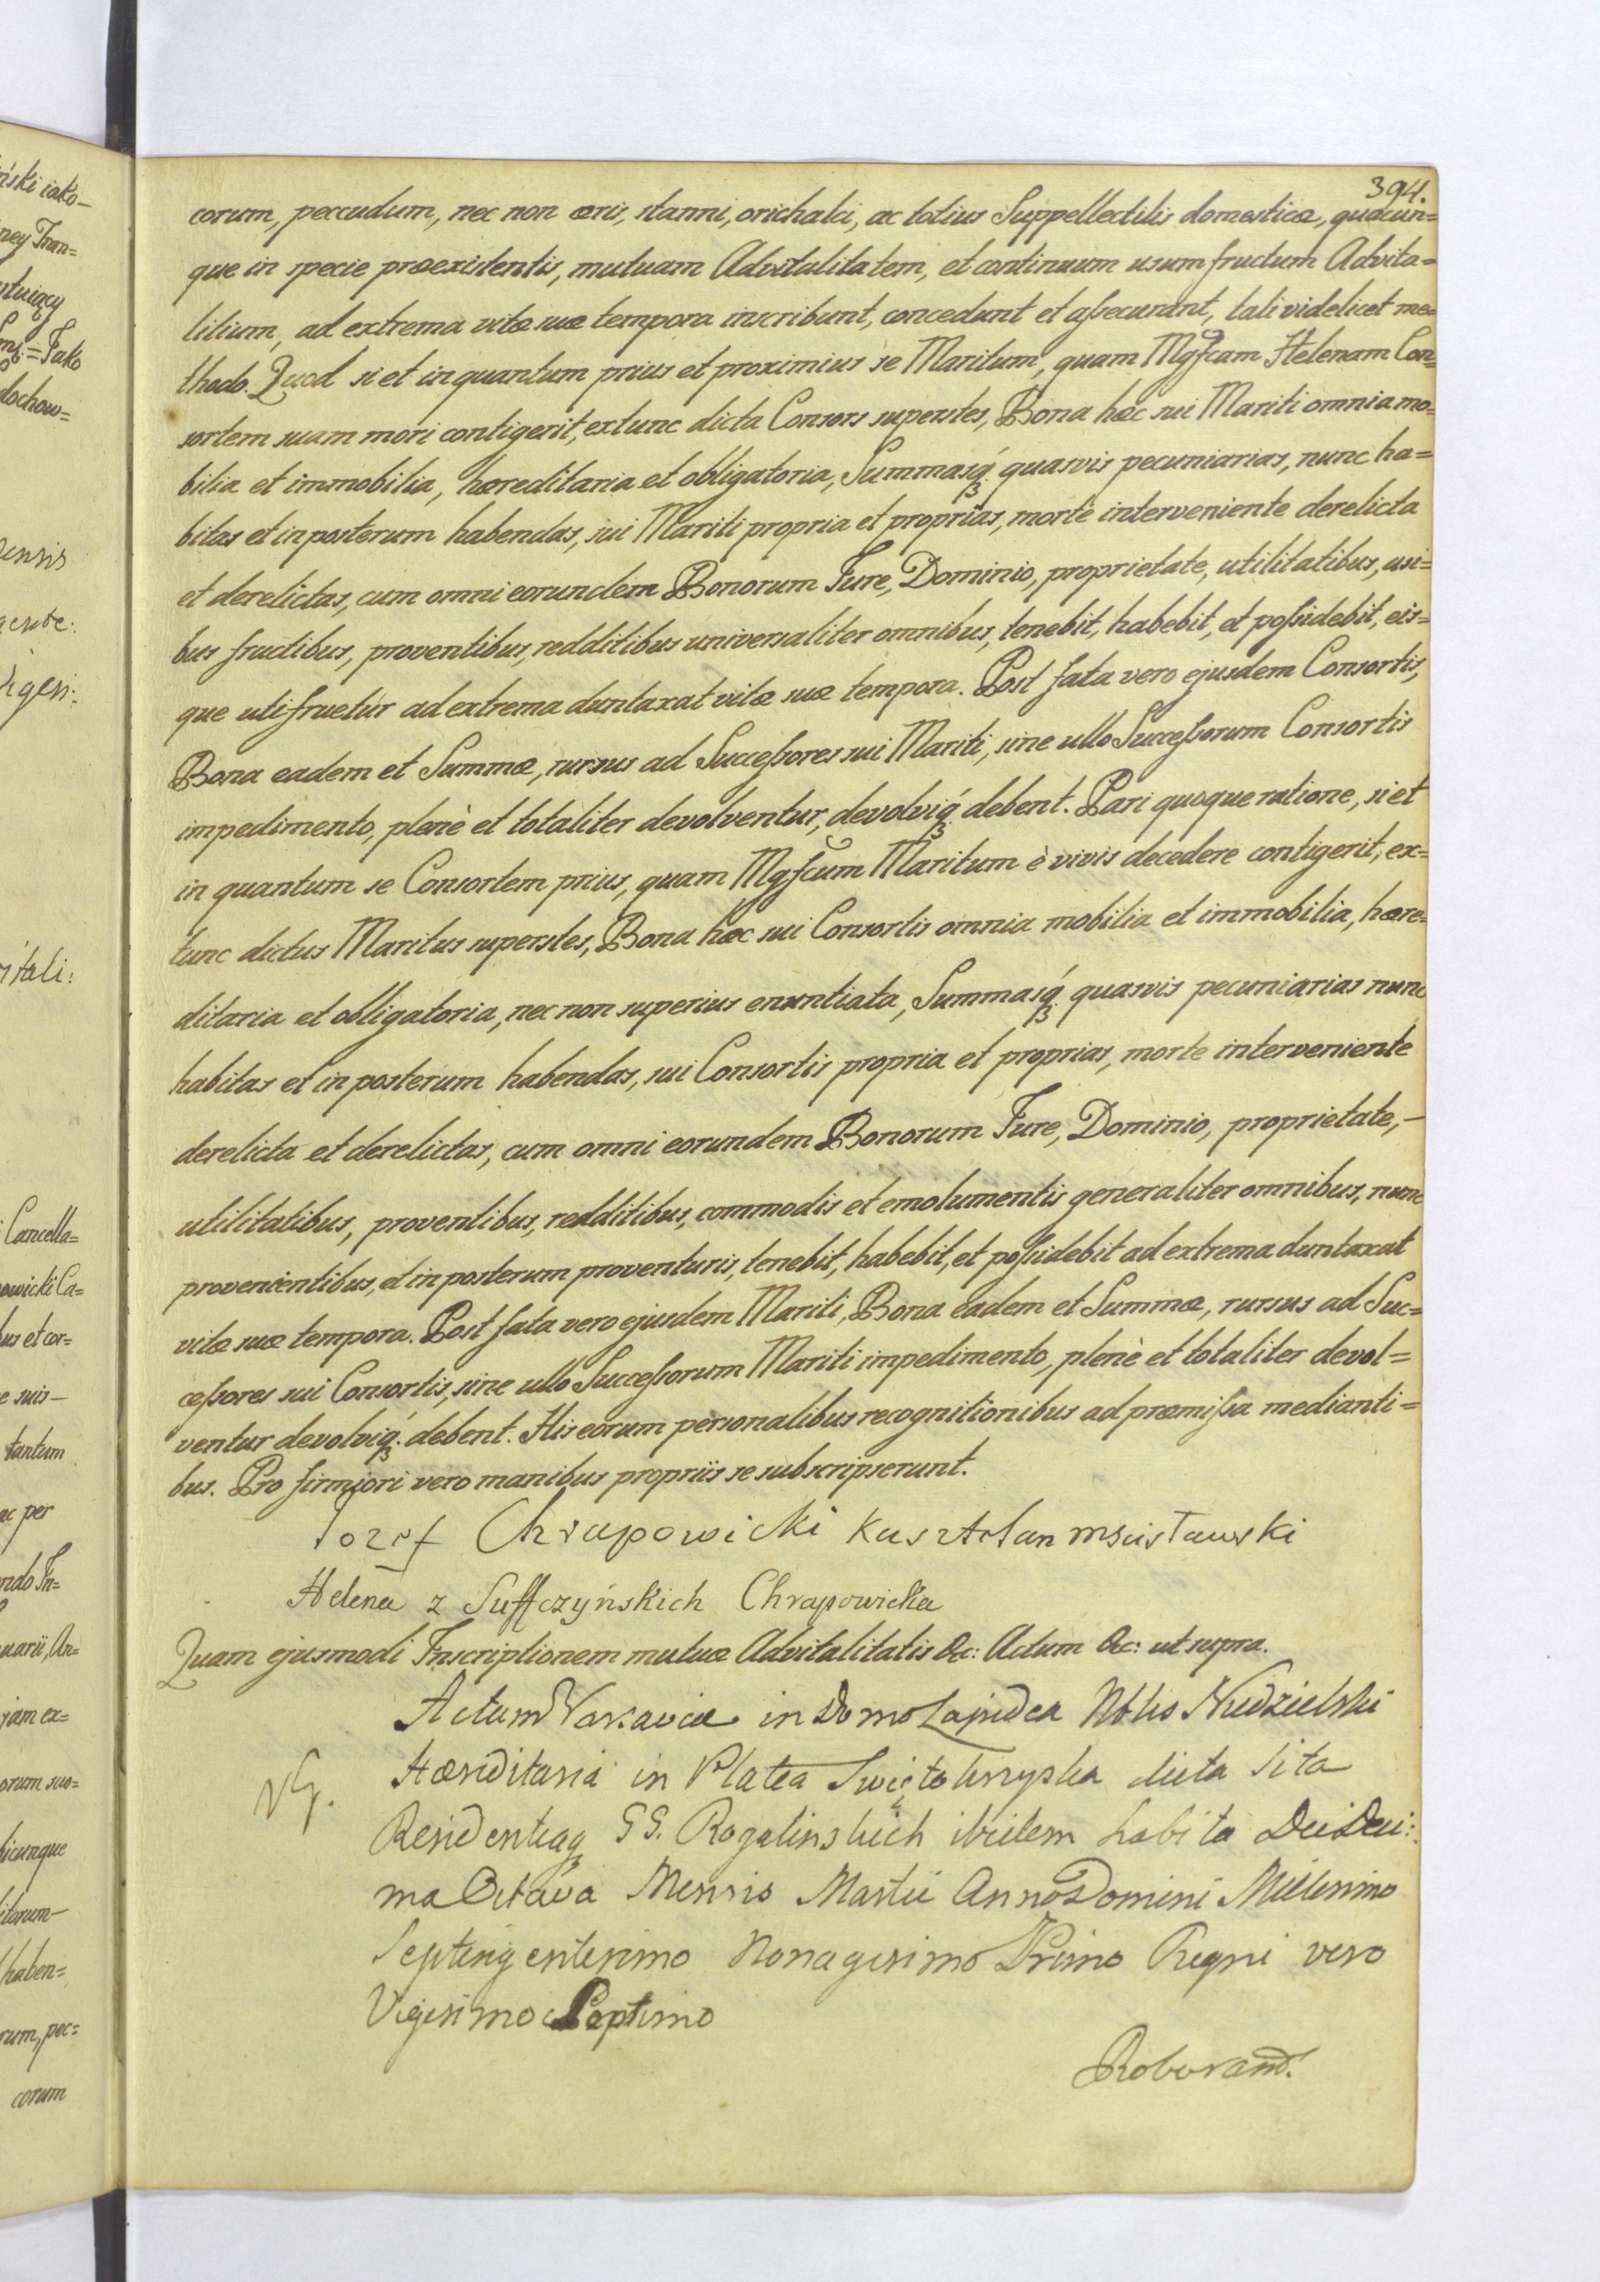 394.
corum, peccudum, nec non æris, stanni, orichalci, ac totius Suppellectilis domesticæ, quacun=
que in specie præexistentis, mutuam Advitalitatem, et continuum usumfructum Advita=
litium, ad extrema vitæ suæ tempora inscribunt, concedunt et assecurant, tali videlicet me=
thodo. Quod si et in quantum prius et proximius se Maritum, quam Mgfcam Helenam Con=
sortem suam mori contigerit, extunc dicta Consors superstes, Bona hæc sui Mariti omnia mo=
bilia et immobilia, hæreditaria et obligatoria, Summasq́ quasvis pecuniarias, nunc ha=
bitas et in posterum habendas, sui Mariti propria et proprias, morte interveniente derelicta
et derelictas, cum omni eorundem Bonorum Jure, Dominio, proprietate, utilitatibus, usi=
bus fructibus, proventibus, redditibus universaliter omnibus, tenebit, habebit, et possidebit, eis=
que utifruetur ad extrema duntaxat vitæ suæ tempora. Post fata vero ejusdem Consortis,
Bona eadem et Summæ, rursus ad Successores sui Mariti, sine ullo Successorum Consortis
impedimento, plenè et totaliter devolventur, devolviq́ debent. Pari quoque ratione, si et
in quantum se Consortem prius, quam Mgfcum Maritum è vivis decedere contigerit, ex=
tunc dictus Maritus superstes, Bona hæc sui Consortis omnia mobilia et immobilia, hære=
ditaria et obligatoria, nec non superius enuntiata, Summasq́ quasvis pecuniarias nunc
habitas et in posterum habendas, sui Consortis propria et proprias, morte interveniente
derelicta et derelictas, cum omni eorundem Bonorum Jure, Dominio, proprietate,—
utilitatibus, proventibus, redditibus, commodis et emolumentis generaliter omnibus, nunc
provenientibus, et in posterum proventuris, tenebit, habebit, et possidebit ad extrema duntaxat
vitæ suæ tempora. Post fata vero ejusdem Mariti, Bona eadem et Summæ, rursus ad Suc=
cessores sui Consortis, sine ullo Successorum Mariti impedimento, plenè et totaliter devol=
ventur devolviq́ debent. His eorum personalibus recognitionibus ad præmissa medianti=
bus. Pro firmiori vero manibus propriis se subscripserunt.
Jozef Chrapowicki Kasztelan mscisławski
Helena z Suffczyńskich Chrapowicka
Quam ejusmodi Inscriptionem mutuæ Advitalitatis &c: Actum &c: ut supra.
Actum Varsaviæ in Domo Lapidea Nblis Niedzielski
Hæreditaria in Platea Swiętokrzyska dicta Sita
Residentiaq GG. Rogalinskich ibidem habita Die Deci:
ma Octava Mensis Martii Anno Domini Millesimo
Septingentesimo Nonagesimo Primo Regni vero
Vigesimo Septimo
Roborand.
iński iako—
ney Tran=
=Jako
dochow=
Cancella=
owicki Ca=
bus et cor=
e suis—
tantum
ac per
ndo In=
uarii, An=
jam ex=
orum suo=
bicunque
itorum—
haben=
rum, pec=
corum